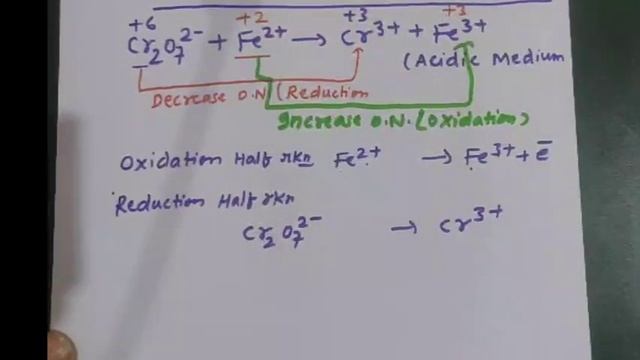 +6 +2 +3 +3
Cr₂O₇²⁻ + Fe²⁺ → Cr³⁺ + Fe³⁺
(Acidic Medium
Decrease O.N (Reduction
Increase O.N. (Oxidation)
Oxidation Half rxn Fe²⁺ → Fe³⁺ + e⁻
Reduction Half rxn
Cr₂O₇²⁻ → Cr³⁺